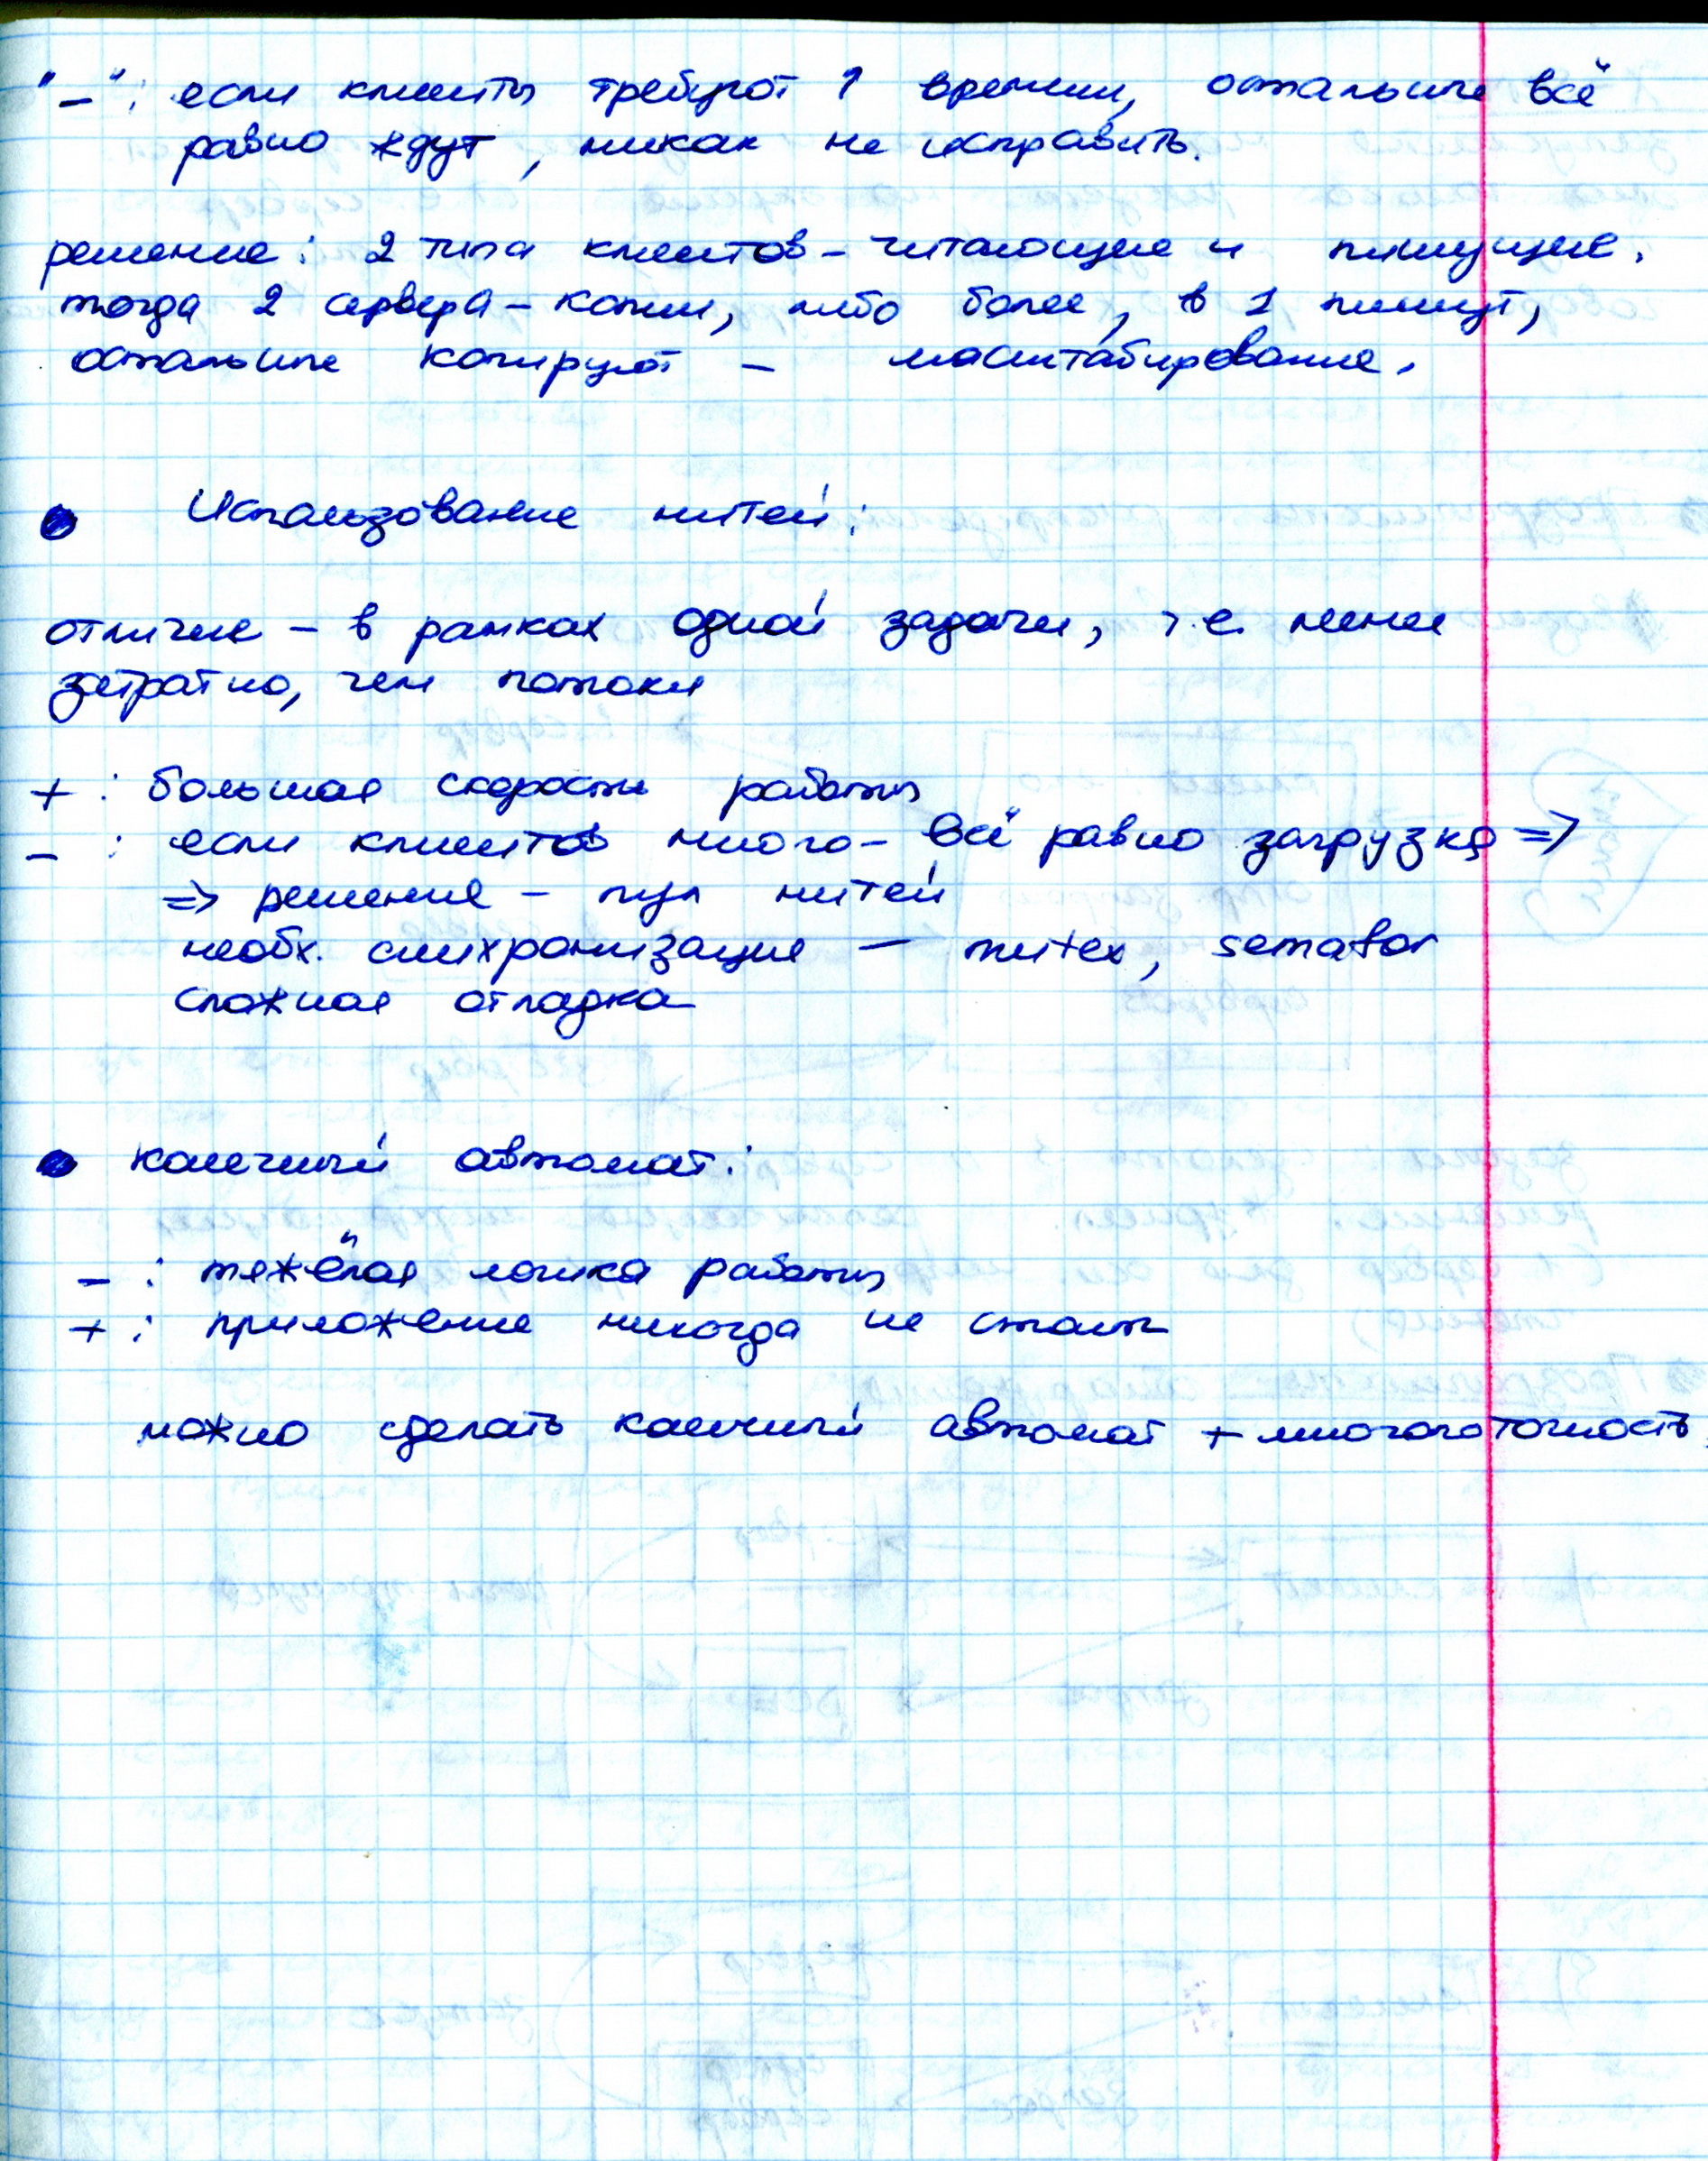 "–": если клиенты требуют 1 времени, остальные всё
равно ждут, никак не исправить.
решение: 2 типа клиентов – читающие и пишущие.
тогда 2 сервера – копии, либо более, в 1 пишут,
остальные копируют – масштабирование.
• Использование нитей:
отличие – в рамках одной задачи, т.е. менее
затратно, чем потоки
+ : большая скорость работы
– : если клиентов много – всё равно загрузка =>
=> решение – пул нитей
необх. синхронизация – mutex, semafor
сложная отладка
• конечный автомат:
– : тяжёлая логика работы
+ : приложение никогда не стоит
можно сделать конечный автомат + многопоточность.